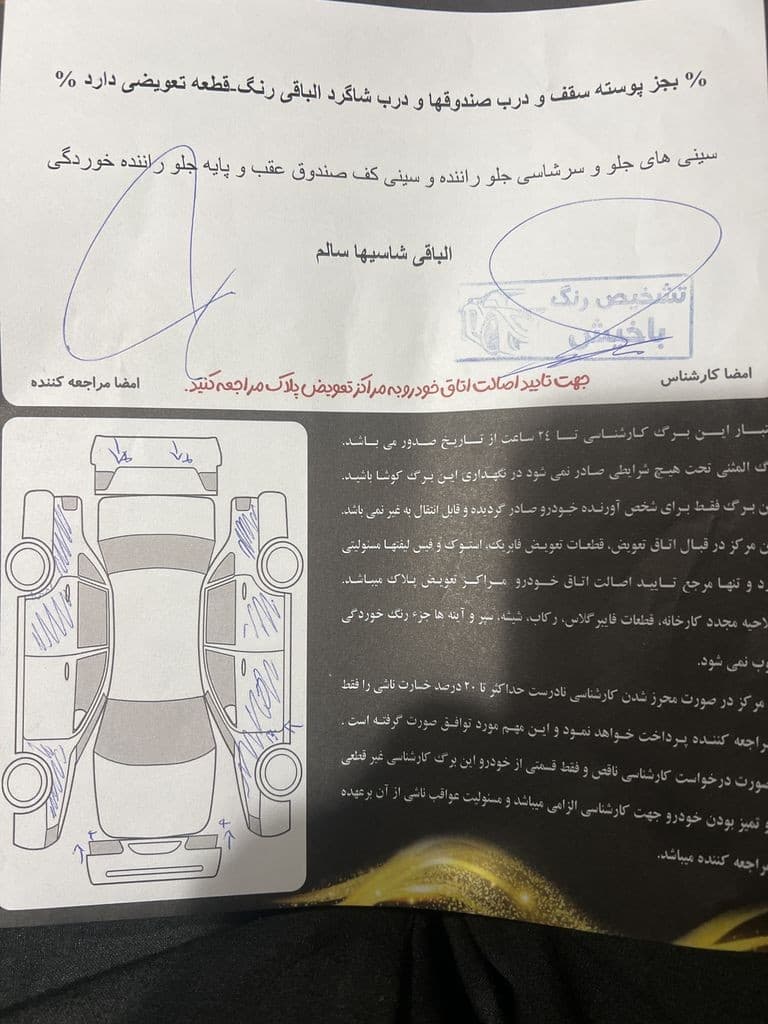 % بجز پوسته سقف و درب صندوقها و درب شاگرد الباقی رنگ-قطعه تعویضی دارد %
سینی های جلو و سرشاسی جلو راننده و سینی کف صندوق عقب و پایه جلو راننده خوردگی
الباقی شاسیها سالم
تشخیص رنگ
باخیش
امضا کارشناس
جهت تایید اصالت اتاق خودرو به مراکز تعویض پلاک مراجعه کنید.
امضا مراجعه کننده
این برگ کارشناسی تا ۲۴ ساعت از تاریخ صدور می باشد.
المثنی تحت هیچ شرایطی صادر نمی شود در نگهداری این برگ کوشا باشید.
برگ فقط برای شخص آورنده خودرو صادر گردیده و قابل انتقال به غیر نمی باشد.
مرکز در قبال اتاق تعویض، قطعات تعویض فابریک، استوک و فیس لیفتها مسئولیتی
و تنها مرجع تایید اصالت اتاق خودرو مراکز تعویض پلاک میباشد.
مجدد کارخانه، قطعات فایبرگلاس، رکاب، شیشه، سپر و آینه ها جزء رنگ خوردگی
نمی شود.
مرکز در صورت محرز شدن کارشناسی نادرست حداکثر تا ۲۰ درصد خسارت ناشی را فقط
کننده پرداخت خواهد نمود و این مهم مورد توافق صورت گرفته است.
صورت درخواست کارشناسی ناقص و فقط قسمتی از خودرو این برگ کارشناسی غیر قطعی
و تمیز بودن خودرو جهت کارشناسی الزامی میباشد و مسئولیت عواقب ناشی از آن برعهده
مراجعه کننده میباشد.